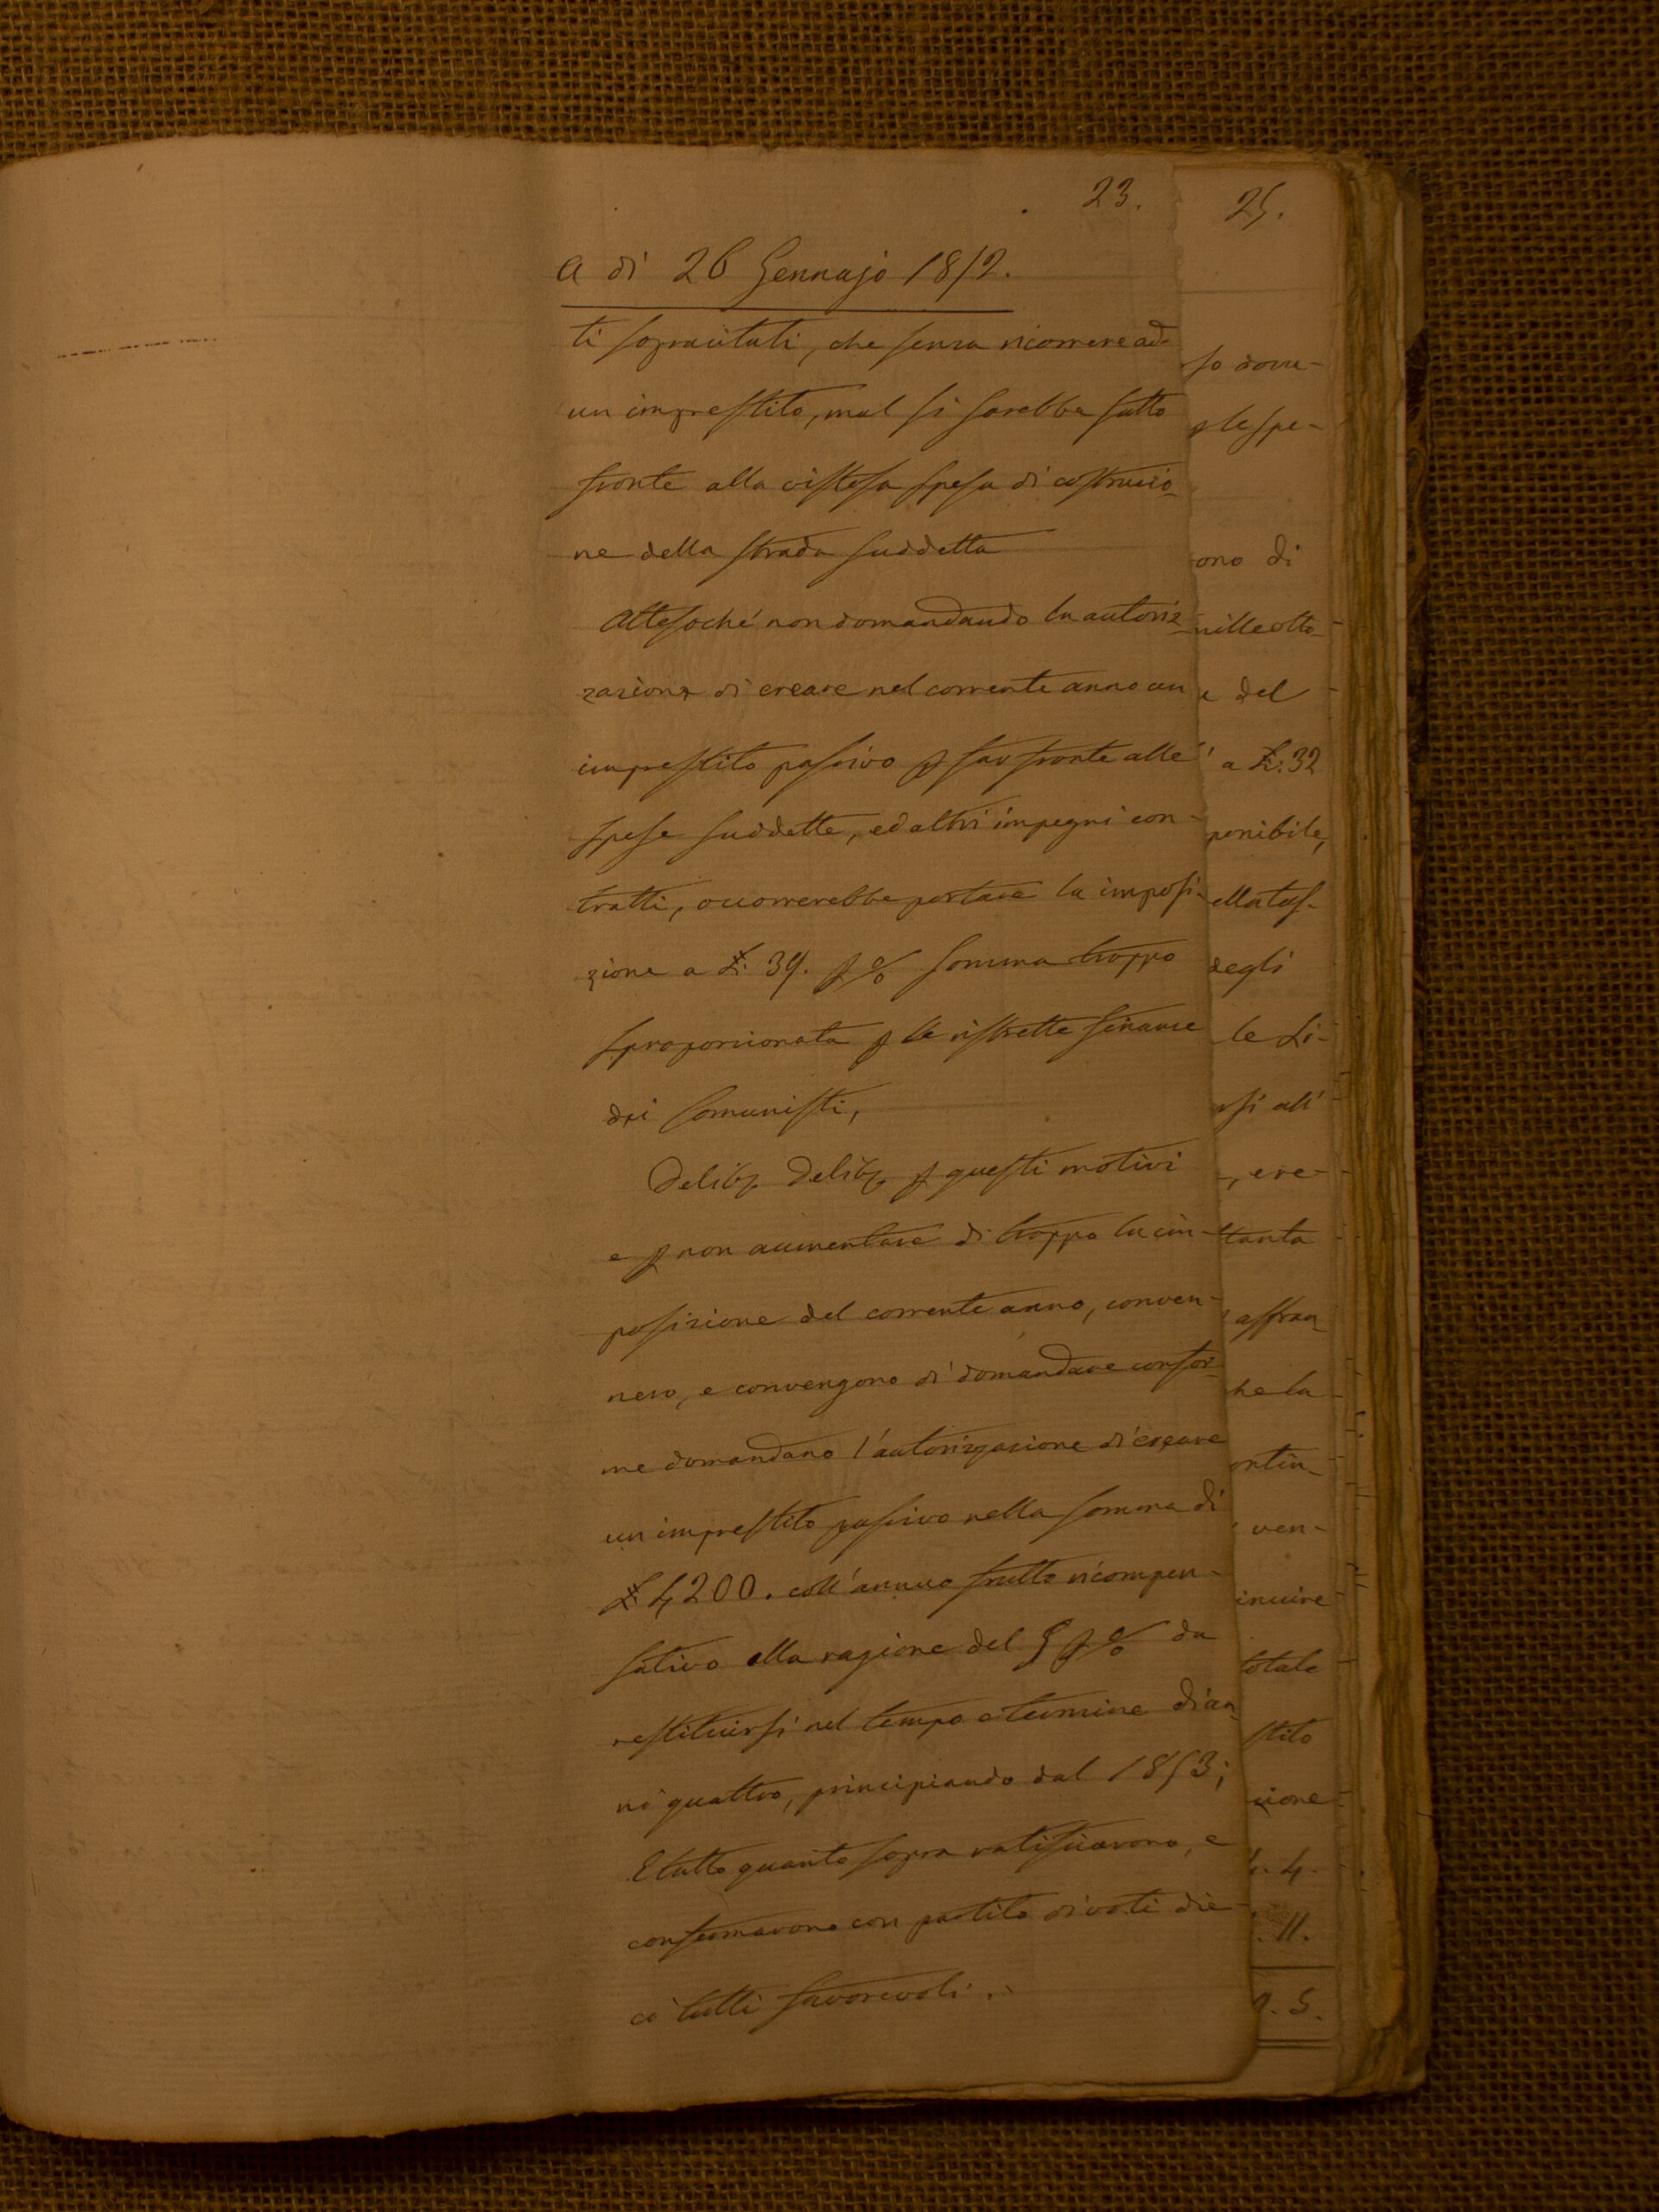 23.
A dì 26 Gennajo 1852.
ti sopracitati, che senza ricorrere ad
un imprestito, mal si sarebbe fatto
fronte alla vistosa spesa di costruzio-
ne della strada suddetta
Attesoché non domandando la autoriz-
zazione di creare nel corrente anno un
imprestito passivo p far fronte alle
spese suddette, ed altri impegni con-
tratti, occorrerebbe portare la imposi-
zione a £: 39. p % somma troppo
sproporzionata p le ristrette finanze
dei Comunisti,
Delib. Delib. p questi motivi
e p non aumentare di troppo la im-
posizione del corrente anno, conven-
nero, e convengono di domandare confor-
me domandano l'autorizzazione di creare
un imprestito passivo nella somma di
£: 4200. coll'annuo frutto ricompen-
sativo alla ragione del 5 p % da
restituirsi nel tempo e termine di an-
ni quattro, principiando dal 1853;
E tutto quanto sopra ratificarono, e
confermarono con partito di voti die-
ci tutti favorevoli.
25.
so dovu-
p le spe-
ono di
mille otto-
e del
a £: 32
ponibile,
ella tas-
degli
le Li-
rsi all'
, cre-
tanta
affran-
he la
ontin-
ven-
inuire
totale
stito
zione
4.
11.
5.